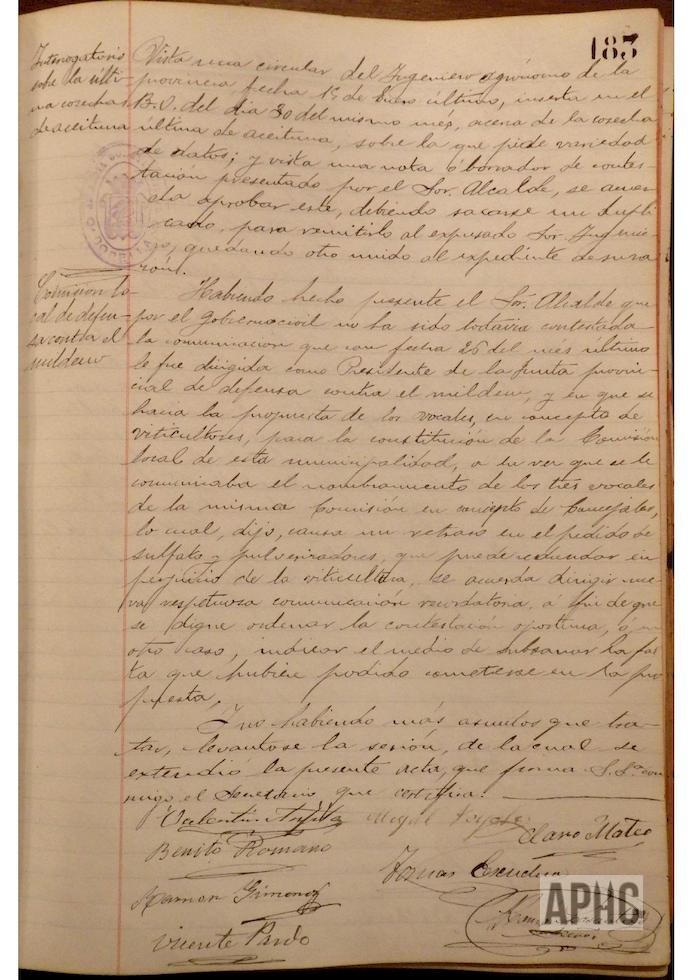 183
Interrogatorio
sobre la últi-
ma cosecha
de aceituna
Vista una circular del Ingeniero agrónomo de la
provincia, fecha de Enero último, inserta en el
B.O. del dia 30 del mismo més, acerca de la cosecha
última de aceituna, sobre la que pide variedad
de datos; y vista una nota ó borrador de contes-
tación presentado por el Sor. Alcalde, se acuer-
da aprobar este, debiendo sacarse un dupli-
cado, para remitirlo al expresado Sor. Ingenie-
ro, quedando otro unido al expediente de su ra-
zón.
Comisión lo-
cal de defen-
sa contra el
mildew
Habiendo hecho presente el Sor. Alcalde que
por el Gobierno civil no ha sido todavía contestada
la comunicación que con fecha 26 del més último
le fue dirigida como Presidente de la Junta provin-
cial de defensa contra el mildew, y en que se
hacía la propuesta de los vocales, en concepto de
viticultores, para la constitución de la Comisión
local de esta municipalidad, a la vez que se le
comunicaba el nombramiento de los tres vocales
de la misma Comisión en concepto de Concejales,
lo cual, dijo, causa un retraso en el pedido de
sulfato y pulverizadores, que puede redundar en
perjuicio de la viticultura, se acuerda dirigir nue-
va respetuosa comunicación recordatoria, á fin de que
se digne ordenar la contestación oportuna, ó, en
otro caso, indicar el medio de subsanar la fal-
ta que hubiere podido cometerse en la pro-
puesta.
Y no habiendo más asuntos que tra-
tar, levantose la sesión, de la cual se
extendió la presente acta, que firma S.Sª con-
migo el Secretario que certifica.
Valentín
Miguel
Claro Mateo
Benito Romano
Tomas
Ramon Gimenez
Vicente Pardo
APHC